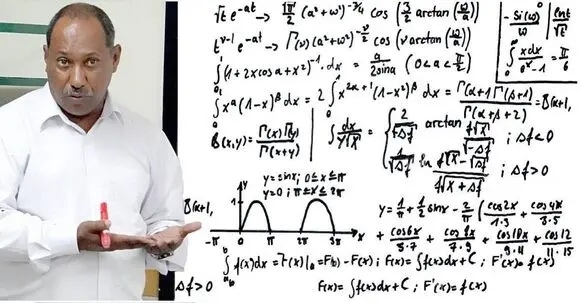 √t e^-at → √π/2 (a²+ω²)^-3/4 cos (3/2 arctan(ω/a))
t^ν-1 e^-at → Γ(ν) (a²+ω²)^-ν/2 cos (ν arctan(ω/a))
∫₀¹ (1+2x cos a + x²)^-1 · dx = a/2sina (0<a<π/2)
∫₀¹ x^α (1-x)^β dx = 2∫₀¹ x^2α+1 (1-x²)^β dx = Γ(α+1)Γ(β+1)/Γ(α+β+2) = B(α+1,
-Si(ω)/ω | lnt/√t
∫₀ xdx/e^x-1 = π/6
B(x,y) = Γ(x)Γ(y)/Γ(x+y)
∫ dx/Y√X = { 2/√-Δf arctan f√X/√-Δf ; Δf<0
1/√Δf ln f√X-√Δf/f√X+√Δf ; Δf>0
y=sinx; 0≤x≤π
y=0; π≤x≤2π
B(α+1,
y
1
-π 0 π 2π 3π x
y = 1/π + 1/2 sinx - 2/π (cos2x/1·3 + cos4x/3·5
+ cos6x/5·7 + cos8x/7·9 + cos10x/9·11 + cos12/11·15
∫ₐᵇ f(x)dx = F(x)|ₐᵇ = F(b)-F(x); F(x) = ∫f(x)dx + C; F'(x) = f(x)
Δf>0
F(x) = ∫f(x)dx + C; F'(x) = f(x)